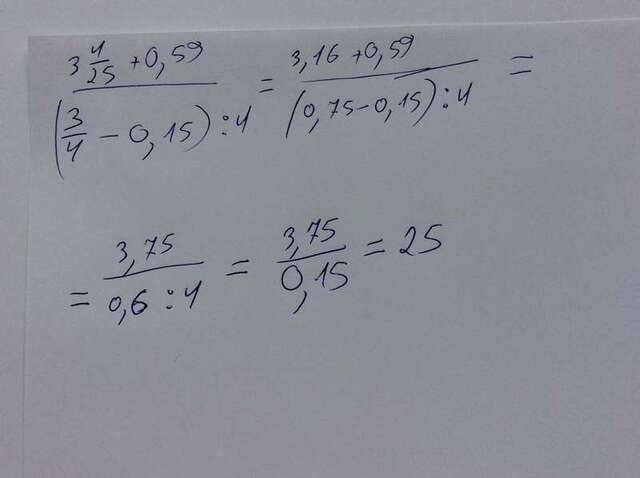 3 4/25 + 0,59 / (3/4 - 0,15) : 4 = 3,16 + 0,59 / (0,75 - 0,15) : 4 =
= 3,75 / 0,6 : 4 = 3,75 / 0,15 = 25